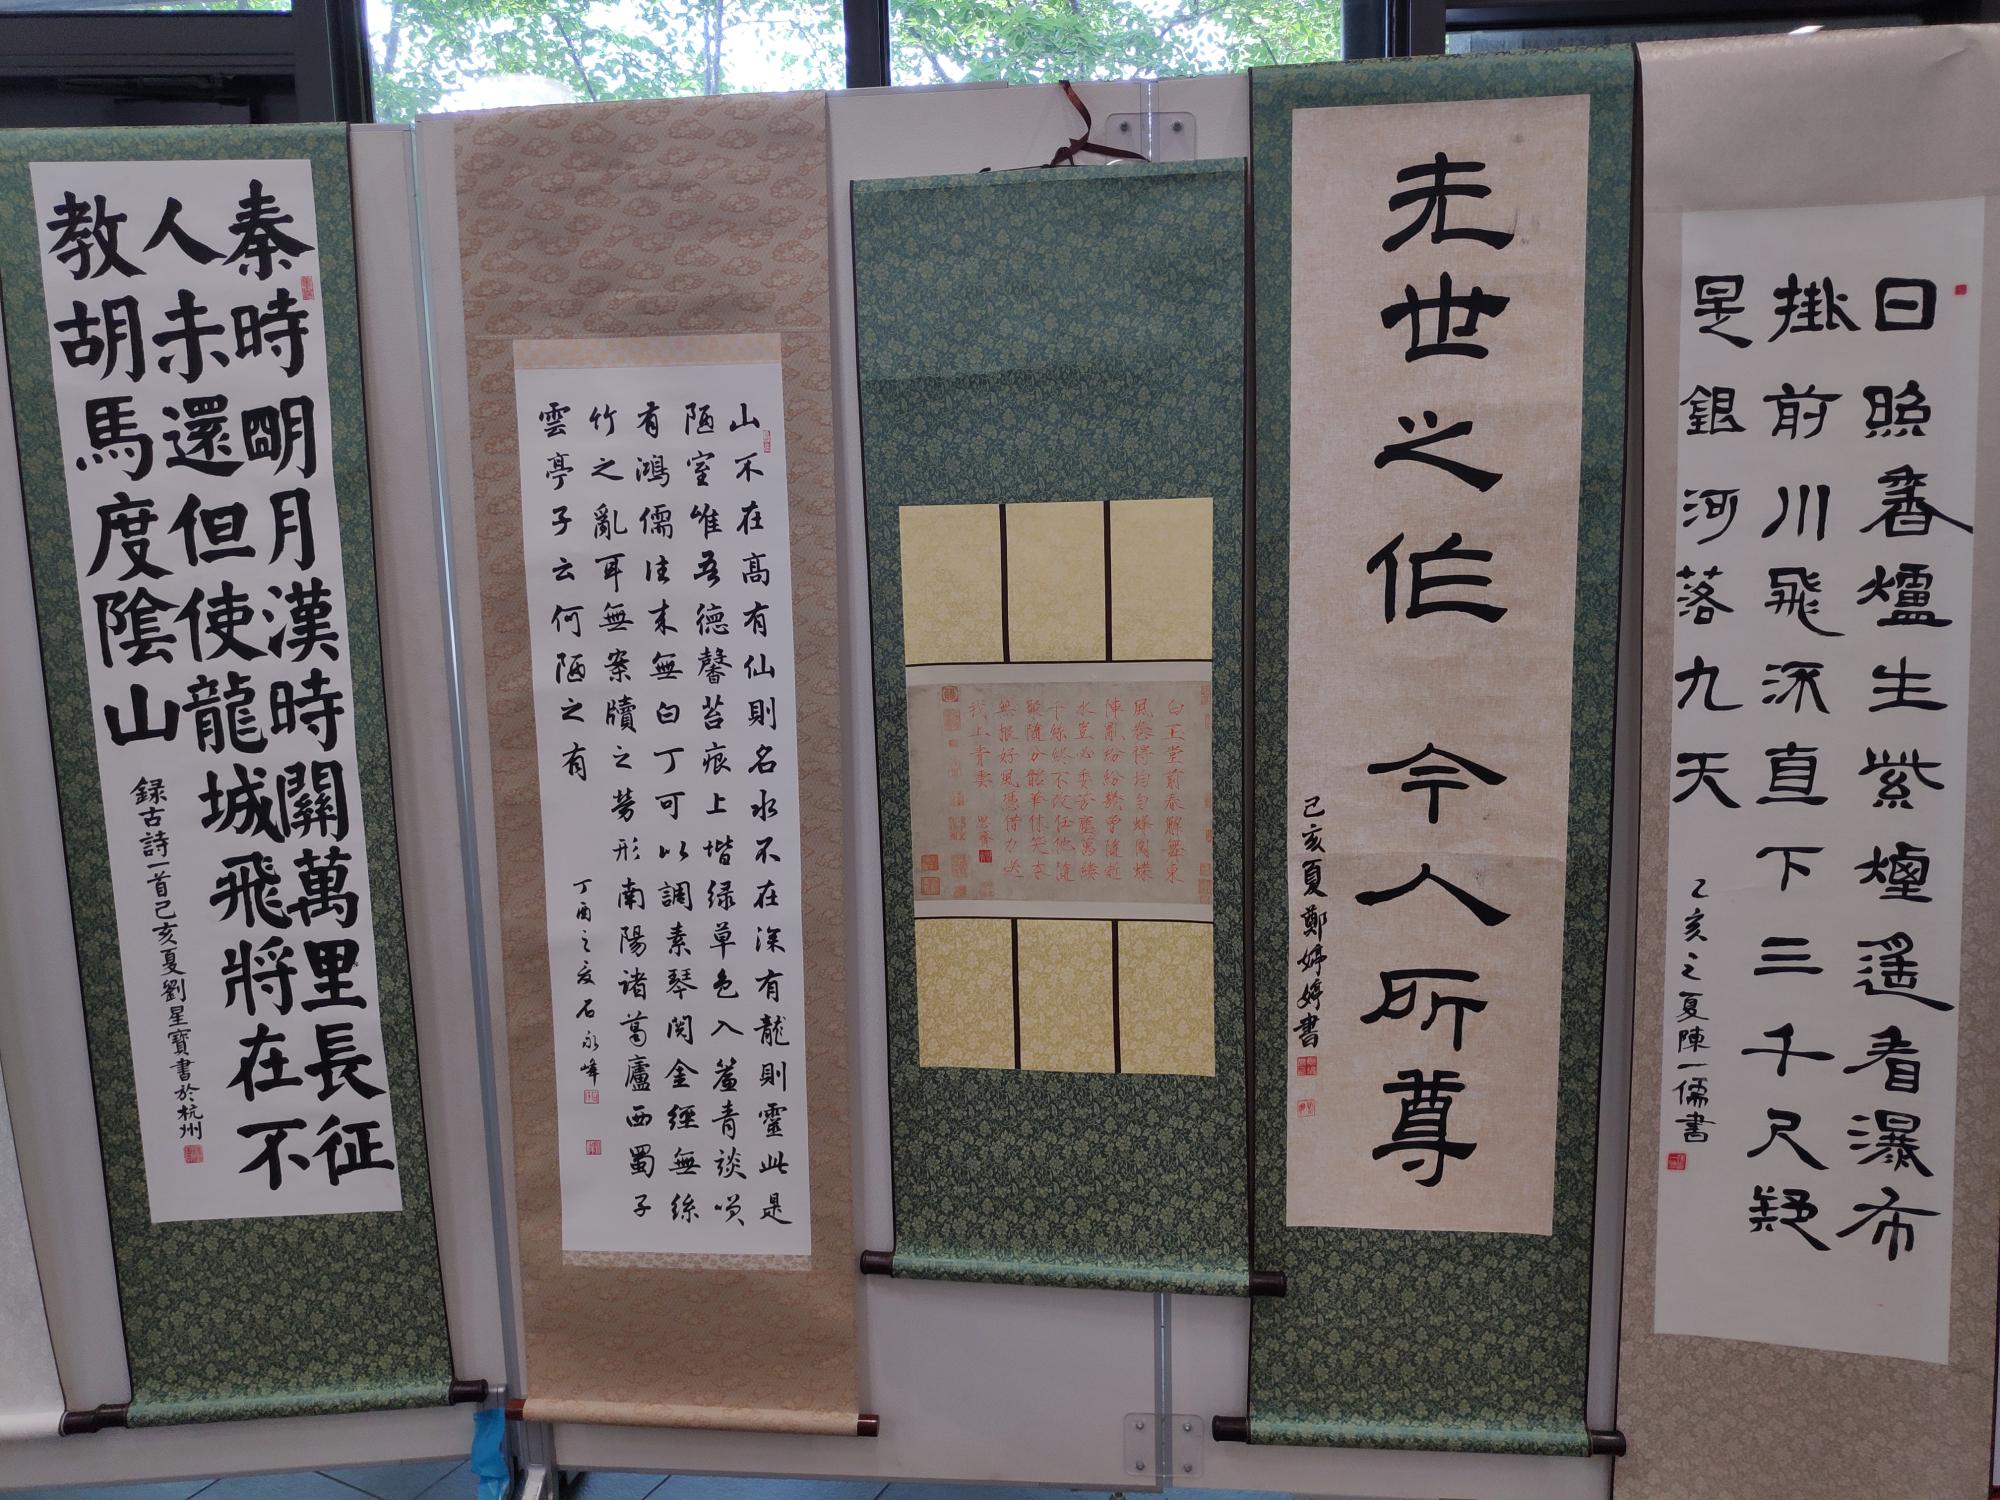 日照香爐生紫煙遙看瀑布
掛前川飛流直下三千尺疑
是銀河落九天
乙亥之夏陳一儒書
先世之作 今人所尊
己亥夏鄭婷婷書
白玉堂前春解舞東
風卷得均勻蜂圍蝶
陣亂紛紛幾曾隨逝
水豈必委芳塵萬縷
千絲終不改任他隨
聚隨分韶華休笑本
無根好風憑借力送
我上青雲 思齊
山不在高有仙則名水不在深有龍則靈此是
陋室唯吾德馨苔痕上堦緑草色入簾青談笑
有鴻儒往来無白丁可以調素琴閱金經無絲
竹之亂耳無案牘之勞形南陽諸葛廬西蜀子
雲亭子云何陋之有
丁酉之夏石永峰
秦時明月漢時關萬里長征
人未還但使龍城飛將在不
教胡馬度陰山
録古詩一首己亥夏劉星寶書於杭州